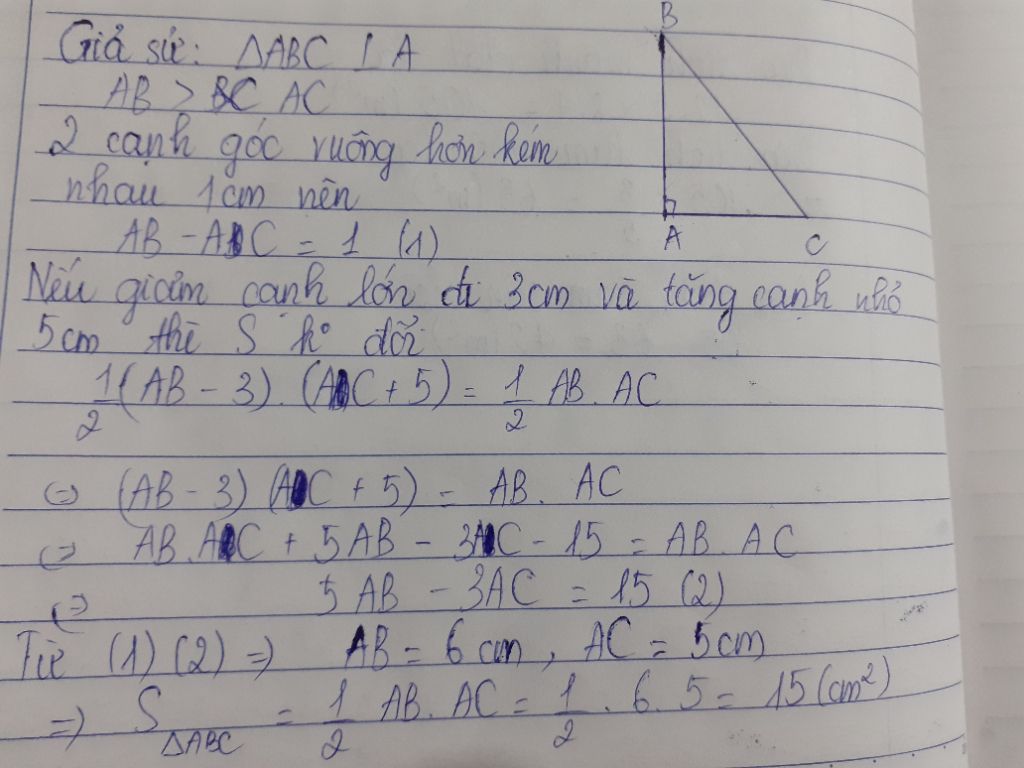 Giả sử: ΔABC ⊥ A
B
AB > AC
2 cạnh góc vuông hơn kém
nhau 1cm nên
AB - AC = 1 (1)
A C
Nếu giảm cạnh lớn đi 3cm và tăng cạnh nhỏ
5cm thì S k° đổi
1/2 (AB - 3) . (AC + 5) = 1/2 AB . AC
⇔ (AB - 3) (AC + 5) = AB . AC
⇔ AB.AC + 5AB - 3AC - 15 = AB . AC
⇔ 5AB - 3AC = 15 (2)
Từ (1) (2) ⇒ AB = 6cm , AC = 5cm
⇒ S ΔABC = 1/2 AB. AC = 1/2 . 6 . 5 = 15 (cm²)